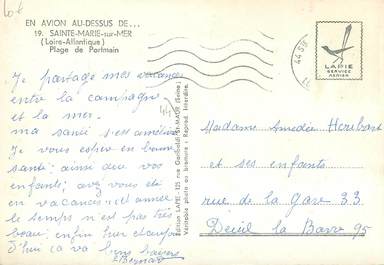 EN AVION AU-DESSUS DE...
19. SAINTE-MARIE-sur-MER
(Loire-Atlantique)
Plage de Portmain
Je partage mes vacances
entre la campagne
et la mer.
ma santé s'est améliorée
Je vous espère en bonne
santé; ainsi que vos
enfants; avez vous été
en vacances; cl année
le temps n'est pas très
beau; enfin pour
d'hui ça va bons baisers
Bernard
Edition LAPIE - 125 rue Garibaldi St-MAUR (Seine)
Véritable photo au bromure : Reprod. Interdite.
LAPIE
SERVICE
AERIEN
Madame Amédée
et ses enfants
rue de la gare 33
Deuil la Barre 95